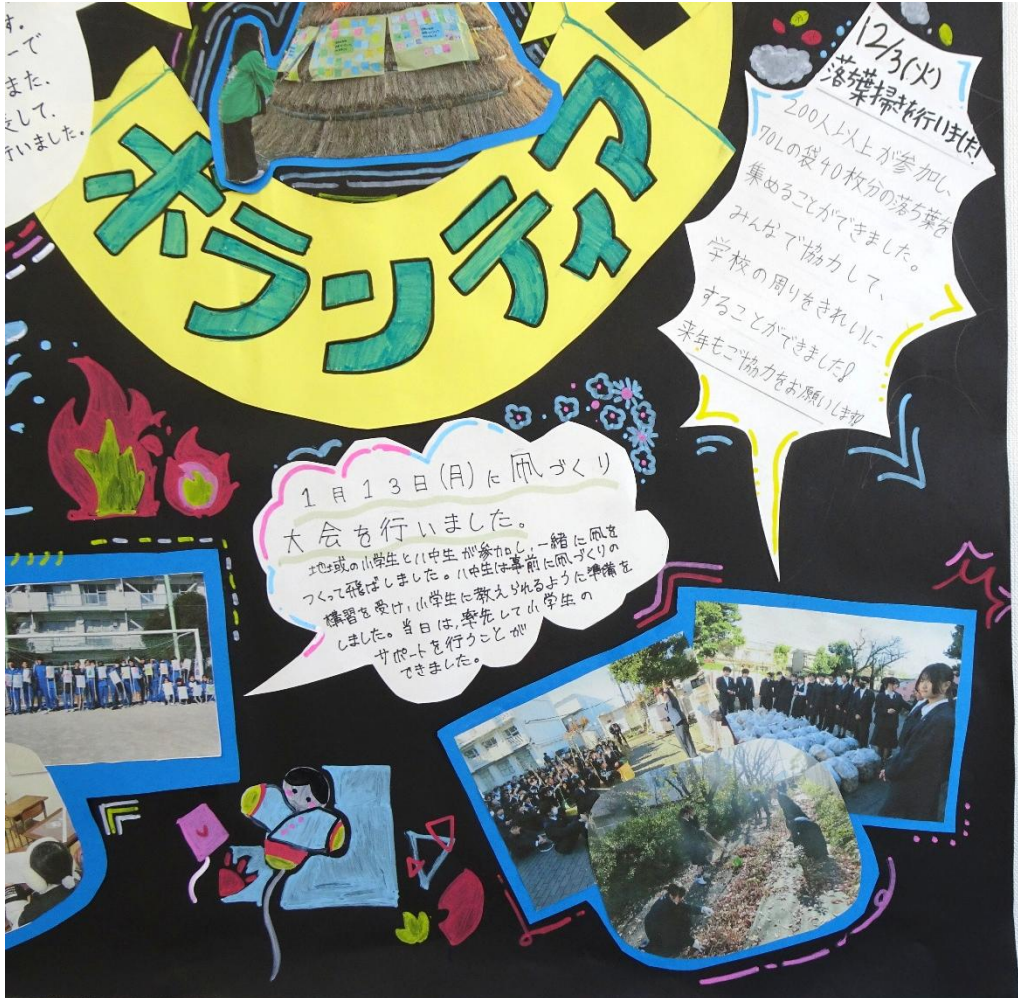 す。
ーで
また、
して、
行いました。
ボランティア
12/3(火)
落ち葉掃きを行いました!
200人以上が参加し、
70Lの袋40枚分の落ち葉を
集めることができました。
みんなで協力して、
学校の周りをきれいに
することができました!
来年もご協力をお願いします!!
1月13日(月)に凧づくり
大会を行いました。
地域の小学生と八中生が参加し、一緒に凧を
つくって飛ばしました。八中生は事前に凧づくりの
講習を受け、小学生に教えられるように準備を
しました。当日は、率先して小学生の
サポートを行うことが
できました。